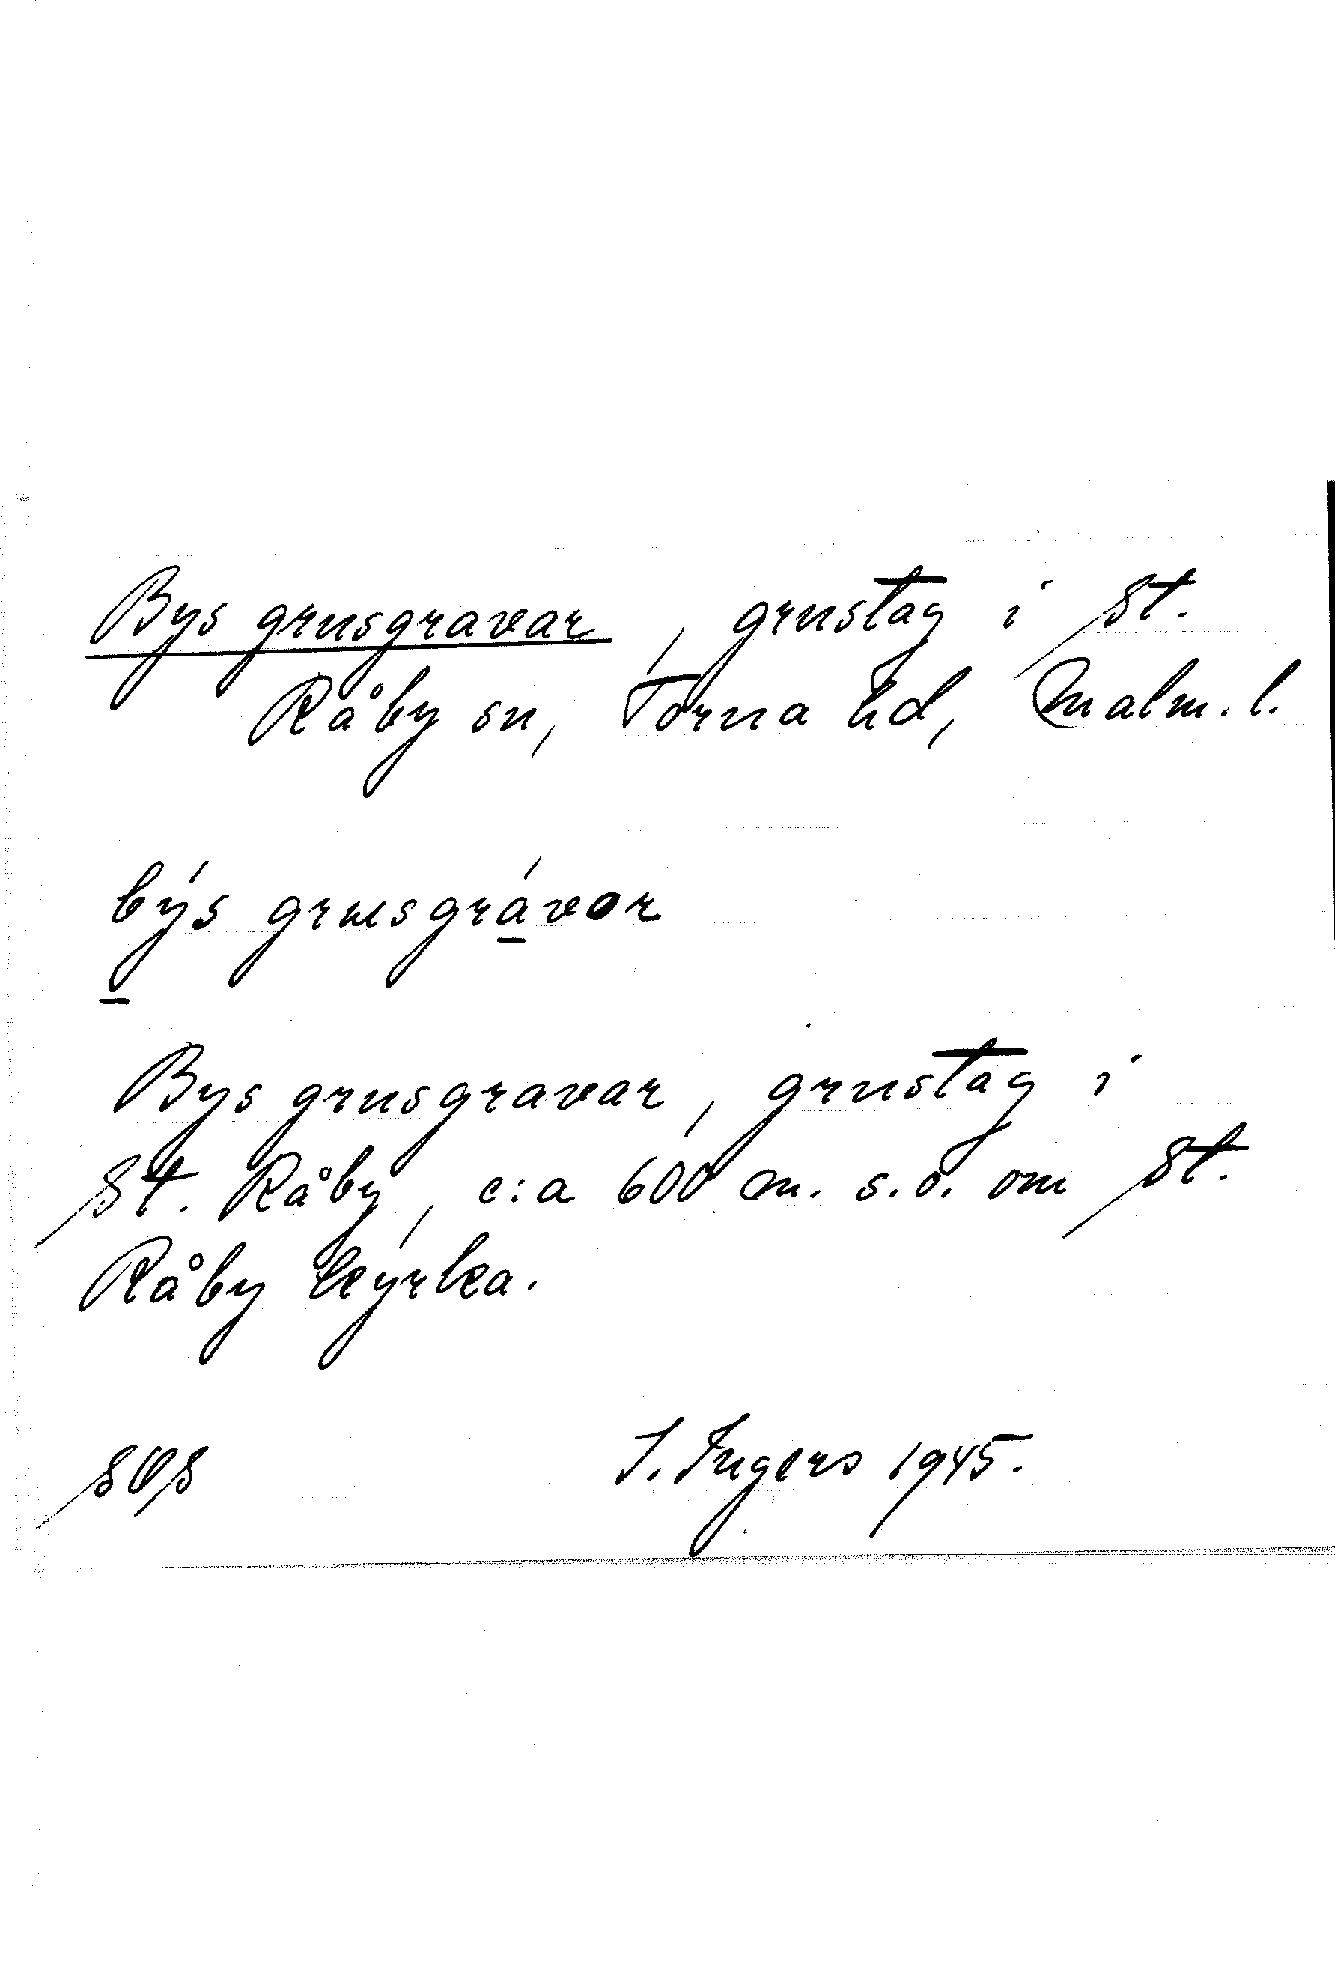 Bys grusgravar, grustag i St.
Råby sn, Torna hd, Malm. l.
býs grusgrávor
Bys grusgravar, grustag i
St. Råby, c:a 600 m. s.o. om St.
Råby kyrka.
SOS I. Ingers 1945.